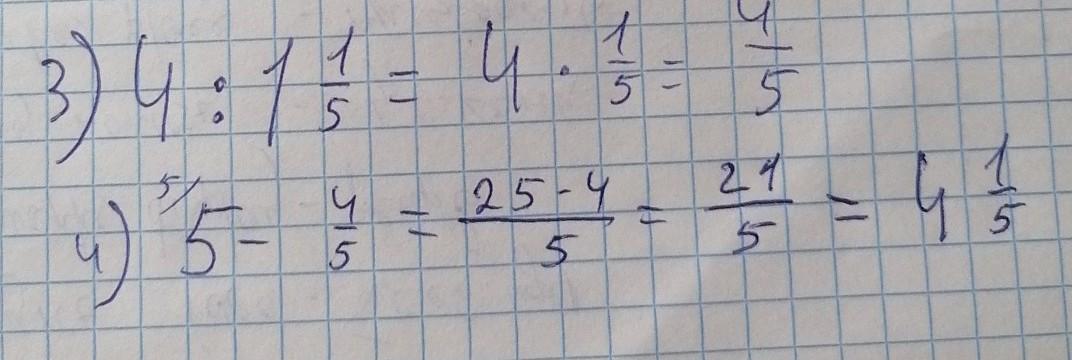 3) 4 : 1 1/5 = 4 · 1/5 = 4/5
4) 5/ 5 - 4/5 = 25-4/5 = 21/5 = 4 1/5